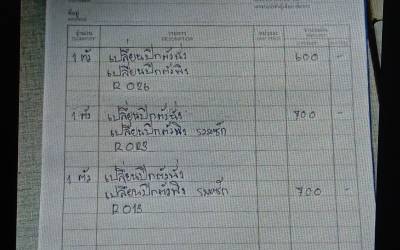 ที่อยู่
จำนวน รายการ หน่วยละ จำนวนเงิน
QUANTITY DESCRIPTION UNIT PRICE AMOUNT
1 ตัว เปลี่ยนปีกตัวนั่ง 600 -
เปลี่ยนปีกตัวพิง
R 026
1 ตัว เปลี่ยนปีกตัวนั่ง 700 -
เปลี่ยนปีกตัวพิง รวมซัก
R 023
1 ตัว เปลี่ยนปีกตัวนั่ง
เปลี่ยนปีกตัวพิง รวมซัก 700 -
R 013